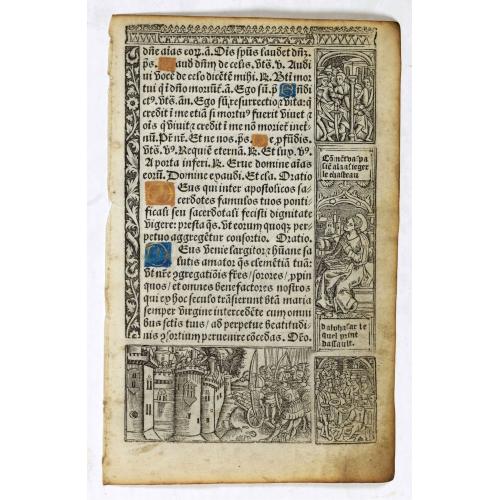 dñe aías eorꝭ. ã. Ois spũs laudet dñꝫ.
ps. Laud dñm de celis. vs̃. V. Audi
ui vocẽ de celo dicẽtẽ mihi. R. Bti mor
tui q̃ i dño moriunt̃. ã. Ego sũ. p̃ Bñdi
ctꝰ. vs̃. añ. Ego sũ resurrectio ⁊ vita: q̃
credit i me etiã si mortuꝰ fuerit viuet ⁊
ois q̃ viuit ⁊ credit i me nõ moriet̃ inet̃
nũ. Pr̃ nr̃. Et ne nos. ps. De ꝓfũdis.
vs̃. V. Requiẽ eternã. R. Et lux. v.
A porta inferi. R. Erue domine aías
eorũ. Domine exaudi. Et cla. Oratio
Deus qui inter apostolicos sa-
cerdotes famulos tuos ponti
ficali seu sacerdotali fecisti dignitate
vigere: presta q̃s. vt eorum quoqꝫ per-
petuo aggregẽtur consortio. Oratio.
Deus venie largitor ⁊ hũane sa
lutis amator q̃s clemẽtiã tuã:
vt nr̃e ꝯgregatiõis fr̃es / sorores / ꝓpin
quos / et omnes benefactores nostros
qui ex hoc seculo trãsierunt btã maria
semper virgine intercedẽte cum omni
bus sctis tuis / ad perpetue beatitudi-
nis ꝯsortium peruenire cõcedas. Oro.
Cõ nerua pa
sie al assieger
le chasteau
quel print
dassault.